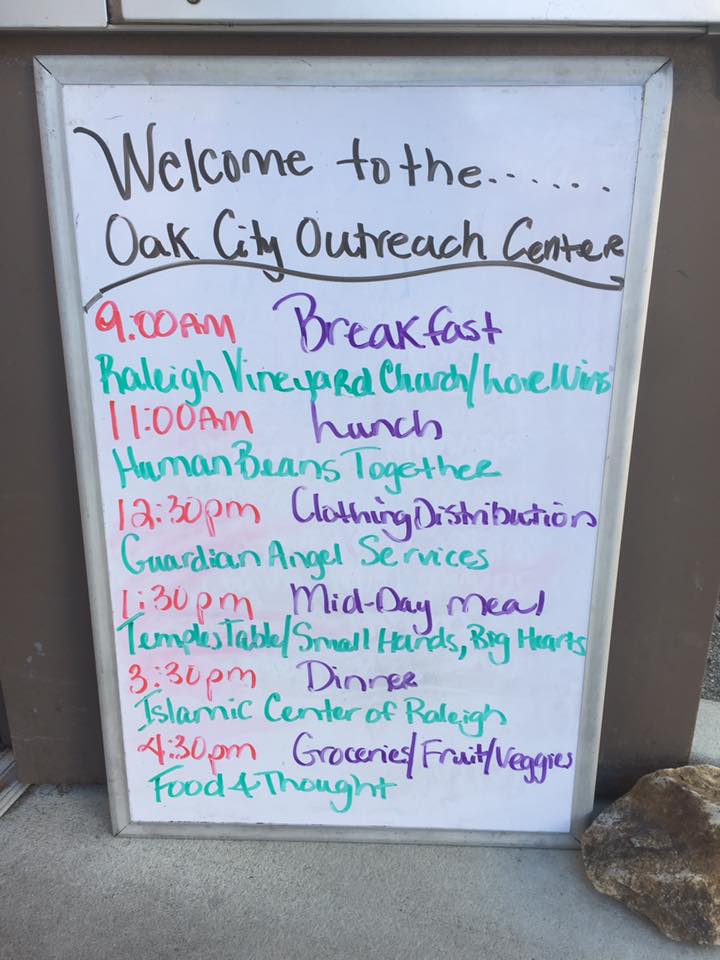 Welcome to the......
Oak City Outreach Center
9:00AM Breakfast
Raleigh Vineyard Church/Love Wins
11:00AM Lunch
Human Beans Together
12:30pm Clothing Distribution
Guardian Angel Services
1:30pm Mid-Day Meal
Temples Table/Small Hands, Big Hearts
3:30pm Dinner
Islamic Center of Raleigh
4:30pm Groceries/Fruit/Veggies
Food 4 Thought